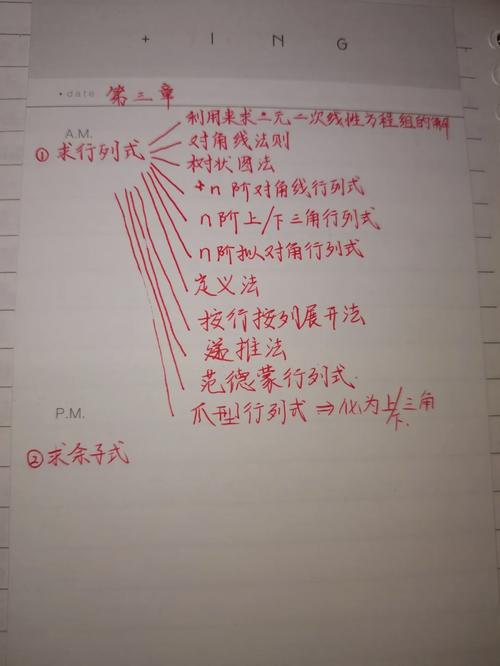 + I N G
• date 第三章
利用来求二元二次线性方程组的解
A.M.
对角线法则
① 求行列式
树状图法
+n 阶对角线行列式
n 阶上/下三角行列式
n 阶拟对角行列式
定义法
按行按列展开法
递推法
范德蒙行列式.
P.M.
爪型行列式 ⇒ 化为上/下三角
② 求余子式